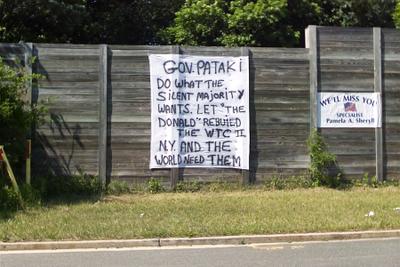 GOV. PATAKI
DO WHAT THE
SILENT MAJORITY
WANTS. LET "THE
DONALD" REBUIED
THE WTC II
N.Y. AND THE
WORLD NEED THEM
WE'LL MISS YOU
SPECIALIST
Pamela A. Sheryll